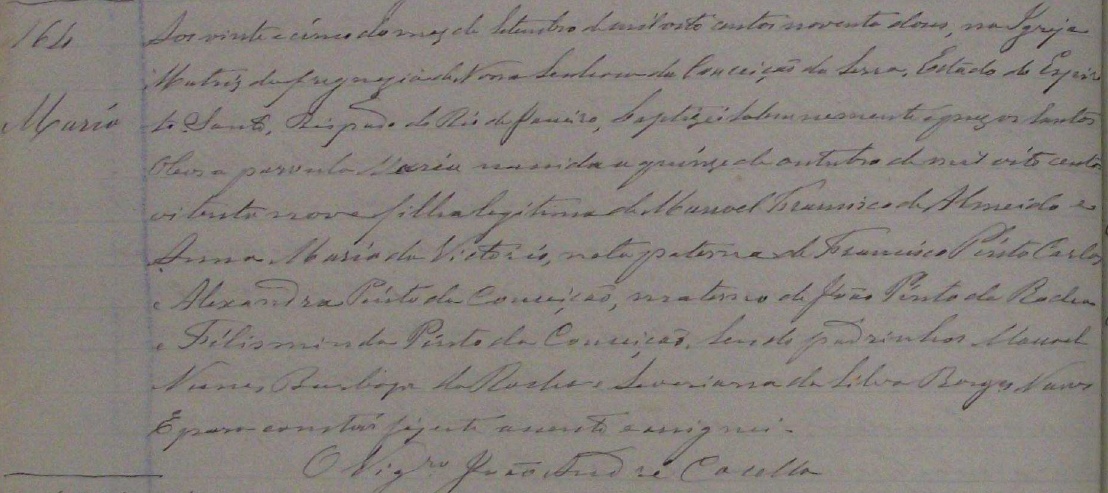 164
Maria
Aos vinte e cinco do mez de Setembro de mil oito centos noventa e dous, na Igreja
Matriz da freguezia de Nossa Senhora da Conceição da Serra, Estado do Espiri
to Santo, Bispado do Rio de Janeiro, baptizei solemnemente e puz os Santos
Oleos a parvula Maria nascida a quinze de outubro de mil oito centos
oitenta nove filha legitima de Manoel Francisco de Almeida e
Anna Maria da Victoria, neta paterna de Francisco Pinto Carlos
e Alexandra Pinto da Conceição, materno de João Pinto da Rocha
e Felisminda Pinto da Conceição. Sendo padrinhos Manoel
Nunes Barboza da Rocha e Severiana da Silva Borges Nunes
E para constar fiz este assento e assignei.
O Vigro João André Casella